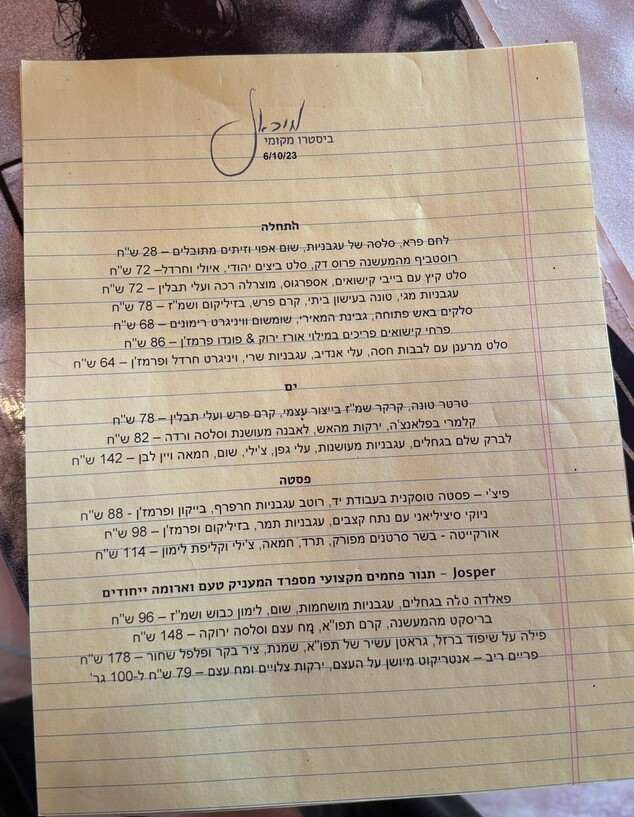 מיכאל
ביסטרו מקומי
6/10/23
התחלה
לחם פרא, סלסה של עגבניות, שום אפוי וזיתים מתובלים – 28 ש"ח
רוסטביף מהמעשנה פרוס דק, סלט ביצים יהודי, איולי וחרדל– 72 ש"ח
סלט קיץ עם בייבי קישואים, אספרגוס, מוצרלה רכה ועלי תבלין – 72 ש"ח
עגבניות מגי, טונה בעישון ביתי, קרם פרש, בזיליקום ושמ"ז – 78 ש"ח
סלקים באש פתוחה, גבינת המאירי, שומשום וויניגרט רימונים – 68 ש"ח
פרחי קישואים פריכים במילוי אורז ירוק & פונדו פרמז'ן – 86 ש"ח
סלט מרענן עם לבבות חסה, עלי אנדיב, עגבניות שרי, ויניגרט חרדל ופרמז'ן – 64 ש"ח
ים
טרטר טונה, קרקר שמ"ז בייצור עצמי, קרם פרש ועלי תבלין – 78 ש"ח
קלמרי בפלאנצ'ה, ירקות מהאש, לאבנה מעושנת וסלסה ורדה – 82 ש"ח
לברק שלם בגחלים, עגבניות מעושנות, עלי גפן, צ'ילי, שום, חמאה ויין לבן – 142 ש"ח
פסטה
פיצ'י – פסטה טוסקנית בעבודת יד, רוטב עגבניות חרפרף, בייקון ופרמז'ן - 88 ש"ח
ניוקי סיציליאני עם נתח קצבים, עגבניות תמר, בזיליקום ופרמז'ן – 98 ש"ח
אורקייטה - בשר סרטנים מפורק, תרד, חמאה, צ'ילי וקליפת לימון – 114 ש"ח
Josper – תנור פחמים מקצועי מספרד המעניק טעם וארומה ייחודים
פאלדה טלה בגחלים, עגבניות מושחמות, שום, לימון כבוש ושמ"ז – 96 ש"ח
בריסקט מהמעשנה, קרם תפו"א, מח עצם וסלסה ירוקה – 148 ש"ח
פילה על שיפוד ברזל, גראטן עשיר של תפו"א, שמנת, ציר בקר ופלפל שחור – 178 ש"ח
פריים ריב – אנטריקוט מיושן על העצם, ירקות צלויים ומח עצם – 79 ש"ח ל-100 גר'